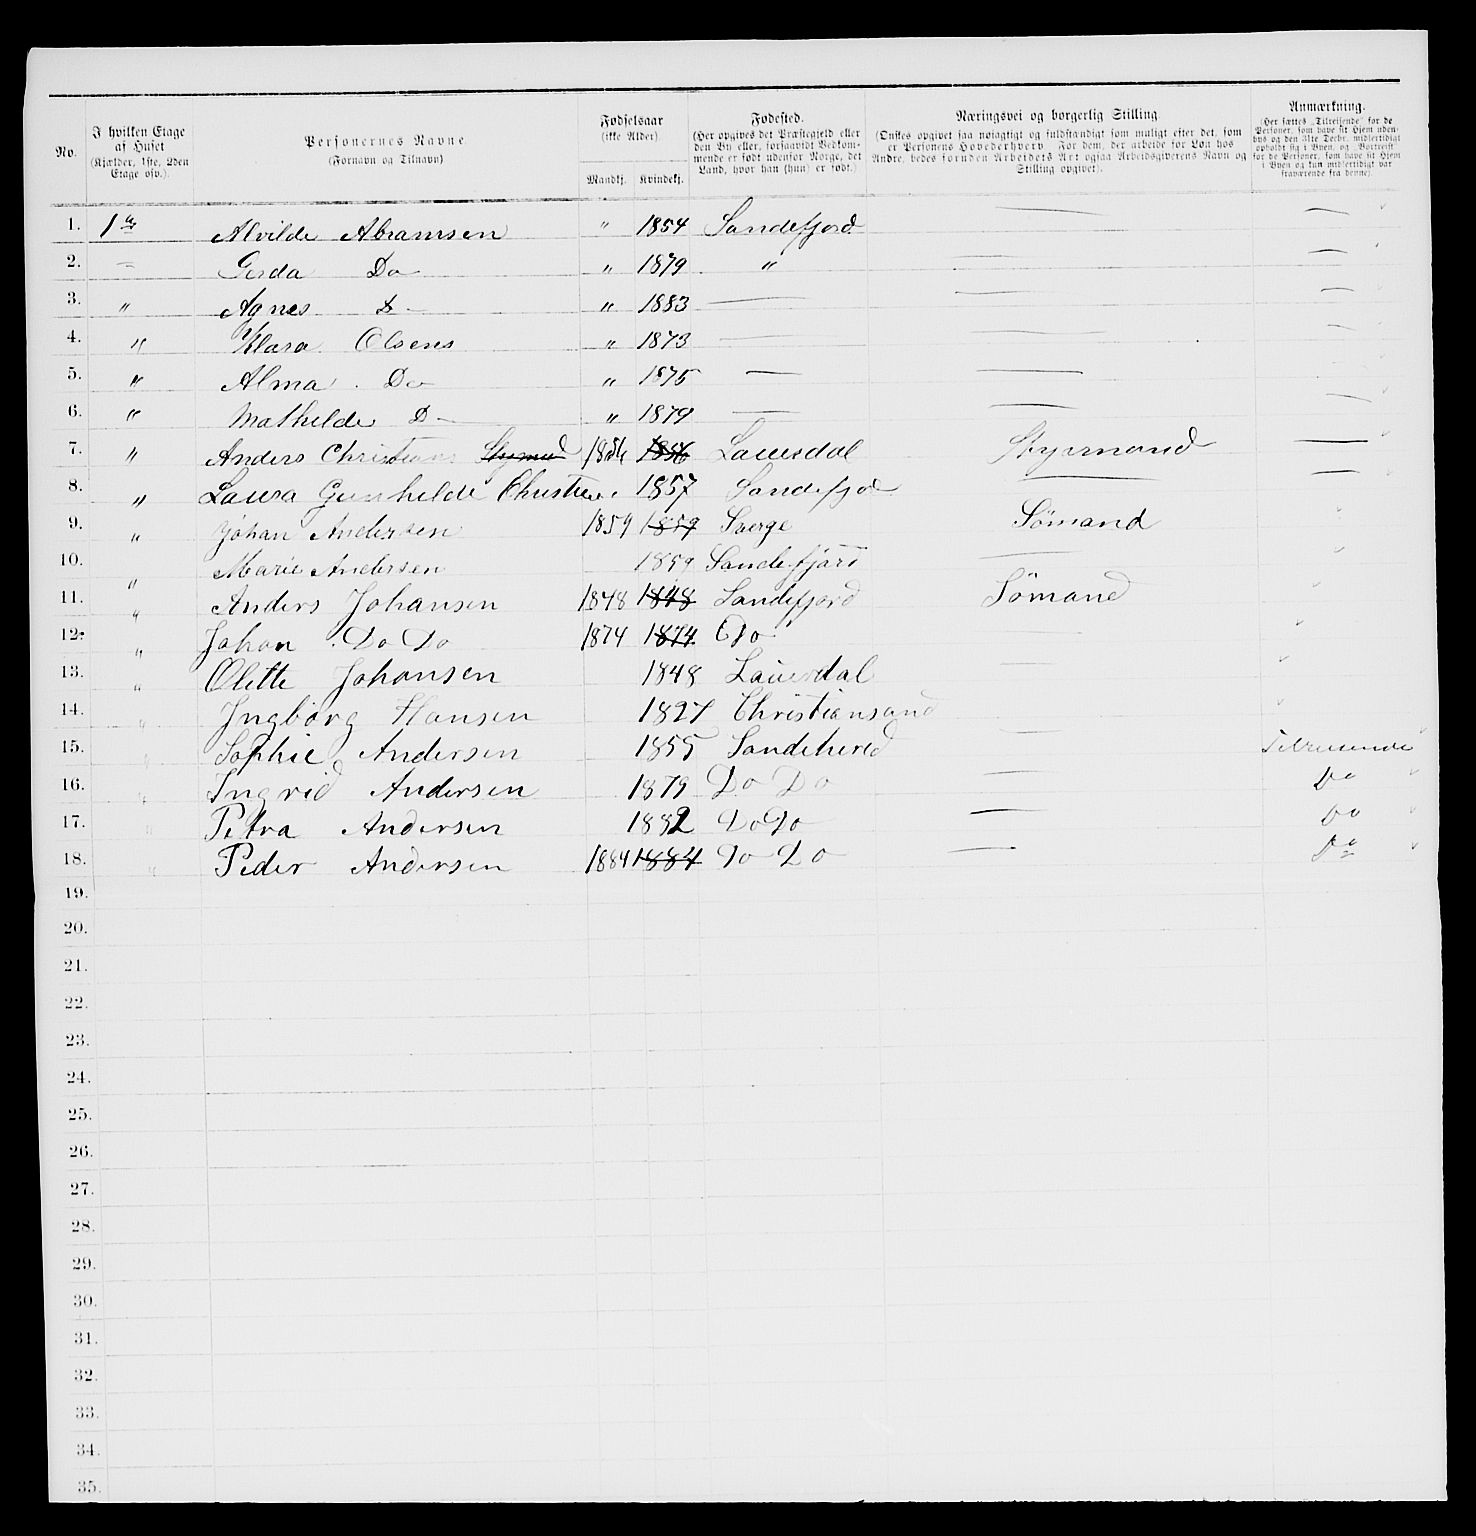 No.
I hvilken Etage af Huset (Kjælder, 1ste, 2den Etage osv.).
Personernes Navne (Fornavn og Tilnavn)
Fødselsaar (ikke Alder).
Mandkj. Kvindekj.
Fødested. (Her opgives det Præstegjeld eller den By eller, forsaavidt Vedkommende er født udenfor Norge, det Land, hvor han (hun) er født.)
Næringsvei og borgerlig Stilling (Ønskes opgivet saa nøiagtigt og fuldstændigt som muligt efter det, som er Personens Hovederhverv. For dem, der arbeide for Løn hos Andre, bedes foruden Arbeidets Art ogsaa Arbeidsgiverens Navn og Stilling opgivet).
Anmærkning. (Her sættes „Tilreisende“ for de Personer, som have sit Hjem udenbys og den 31te Decbr. midlertidigt opholdt sig i Byen, og „Bortreist“ for de Personer, som have sit Hjem i Byen og kun midlertidigt var fraværende fra denne).
1. 1ste Alvilde Abramsen " 1854 Sandefjord — —
2. — Gerda Do " 1879 " — —
3. " Agnes D — " 1883 — — —
4. " Klara Olsens " 1873 — — —
5. " Alma Do " 1875 — —
6. " Mathilde D — " 1879 — — —
7. " Anders Christian Stymd 1856 1856 Laurdal Styrmand —
8. " Laura Gunhilde Christine 1857 Sandefjod — —
9. " Johan Andersen 1859 1859 Sverge Sömand "
10. " Marie Andersen 1859 Sandefjord — "
11. " Anders Johansen 1848 1848 Sandefjord Sömand "
12. " Johan Do Do 1874 1874 Do — "
13. " Olette Johansen 1848 Lauerdal — "
14. " Ingborg Hansen 1827 Christiansand — "
15. " Sophie Andersen 1855 Sandeherred — Tilreisende
16. " Ingrid Andersen 1879 Do Do — Do
17. " Petra Andersen 1882 Do Do — Do
18. " Peder Andersen 1884 1884 Do Do — Do
19.
20.
21.
22.
23.
24.
25.
26.
27.
28.
29.
30.
31.
32.
33.
34.
35.